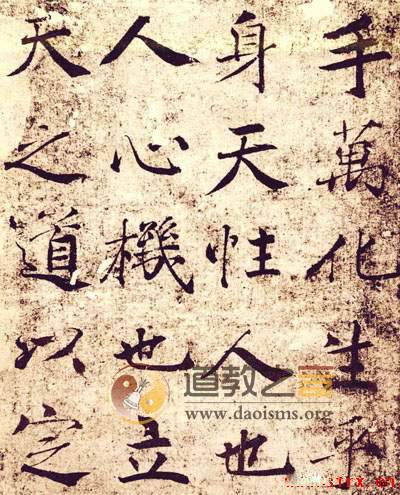 手萬化生乎
身天性人也
人心機也立
天之道以定
道教之音
www.daoisms.org